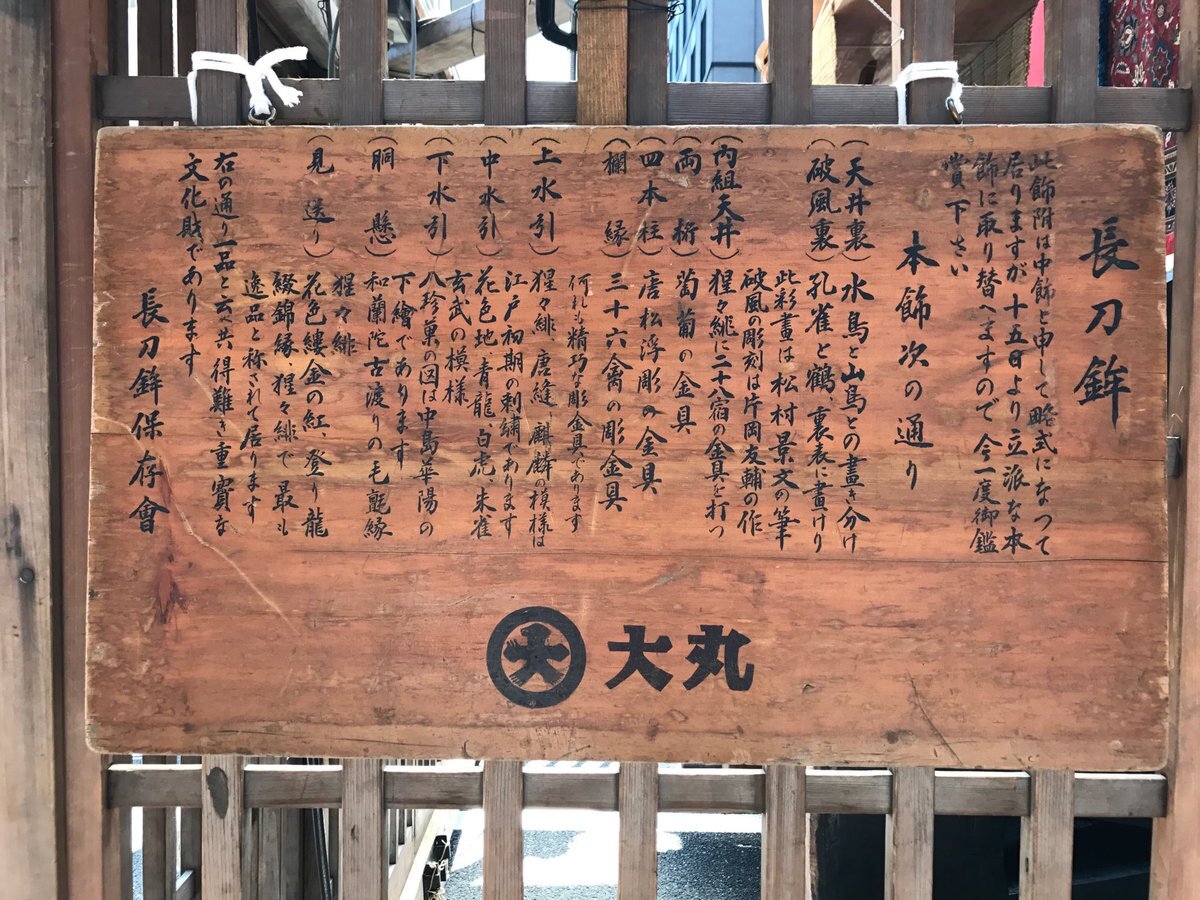 長刀鉾
此飾附は中飾と申して略式になつて
居りますが十五日より立派な本
飾に取り替へますので今一度御鑑
賞下さい
本飾次の通り
（天井裏）水鳥と山鳥との畫き分け
（破風裏）孔雀と鶴、裏表に畫けり
此彩畫は松村景文の筆
破風の彫刻は片岡友輔の作
（内組天井）猩々緋に二十八宿の金具を打つ
（両桁）葡萄の金具
（四本柱）唐松浮彫の金具
（欄縁）三十六禽の彫金具
何れも精巧な彫金具であります
（上水引）猩々緋、唐縫、麒麟の模様は
江戸初期の刺繍であります
（中水引）花色地、青龍、白虎、朱雀
玄武の模様
（下水引）八珍菓の図は中島華陽の
下繪であります
（胴懸）和蘭陀古渡りの毛氈縁
猩々緋
（見送り）花色縷金の紅、登り龍
綴錦縁、猩々緋で最も
逸品と称されて居ります
右の通り一品と云共得難き重寳な
文化財であります
長刀鉾保存會
大 大丸